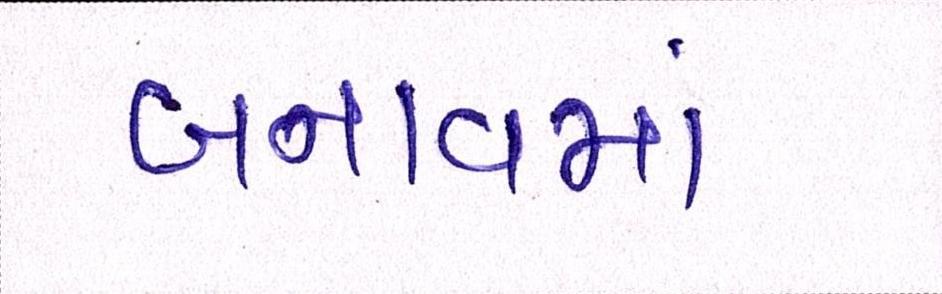 બનાવમાં